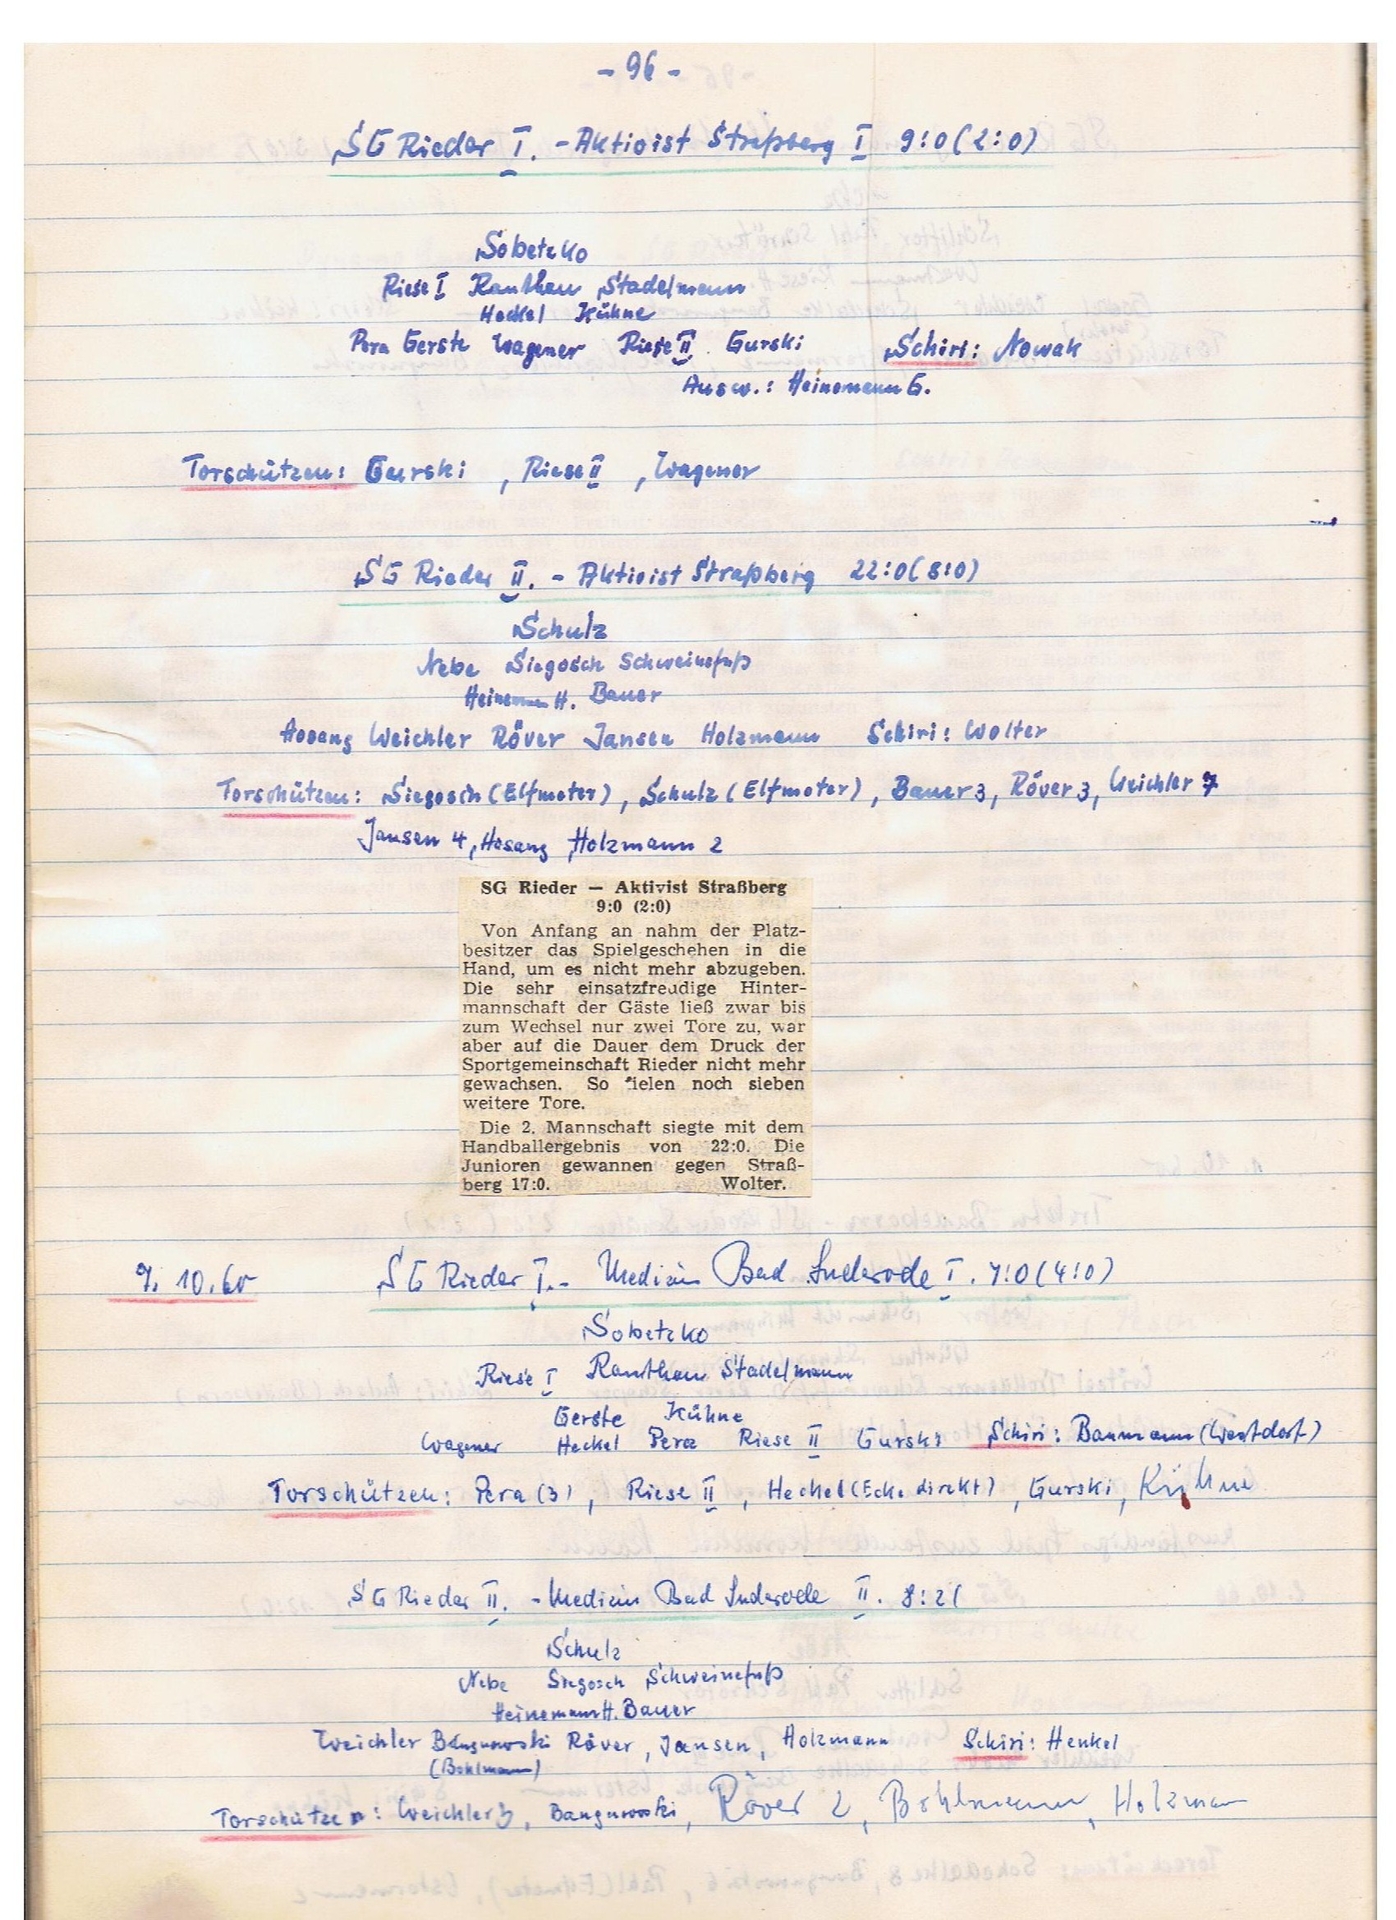 - 96 -
SG Rieder I. - Aktivist Straßberg I 9:0 (2:0)
Sobetzko
Riese I Ranthen Stadelmann
Heckel Kühne
Pera Gerste Wagener Riese II Gurski Schiri: Nowak
Ausw.: Heinemann G.
Torschützen: Gurski , Riese II , Wagener
SG Rieder II. - Aktivist Straßberg 22:0 (8:0)
Schulz
Nebe Siegosch Schweinefuß
Heinemann H. Bauer
Hosang Weichler Röver Jansen Holzmann Schiri: Wolter
Torschützen: Siegosch (Elfmeter), Schulz (Elfmeter), Bauer 3, Röver 3, Weichler 7
Jansen 4, Hosang, Holzmann 2
SG Rieder — Aktivist Straßberg
9:0 (2:0)
Von Anfang an nahm der Platz-
besitzer das Spielgeschehen in die
Hand, um es nicht mehr abzugeben.
Die sehr einsatzfreudige Hinter-
mannschaft der Gäste ließ zwar bis
zum Wechsel nur zwei Tore zu, war
aber auf die Dauer dem Druck der
Sportgemeinschaft Rieder nicht mehr
gewachsen. So fielen noch sieben
weitere Tore.
Die 2. Mannschaft siegte mit dem
Handballergebnis von 22:0. Die
Junioren gewannen gegen Straß-
berg 17:0. Wolter.
9. 10. 60 SG Rieder I. - Medizin Bad Suderode I. 7:0 (4:0)
Sobetzko
Riese I Ranthen Stadelmann
Gerste Kühne
Wagener Heckel Pera Riese II Gurski Schiri: Baumann (Westdorf)
Torschützen: Pera (3), Riese II, Heckel (Ecke direkt), Gurski, Kühne
SG Rieder II. - Medizin Bad Suderode II. 8:2 (
Schulz
Nebe Siegosch Schweinefuß
Heinemann H. Bauer
Weichler Bangnowski Röver, Jansen, Holzmann Schiri: Henkel
(Bohlmann)
Torschützen: Weichler 3, Bangnowski, Röver 2, Bohlmann, Holzmann